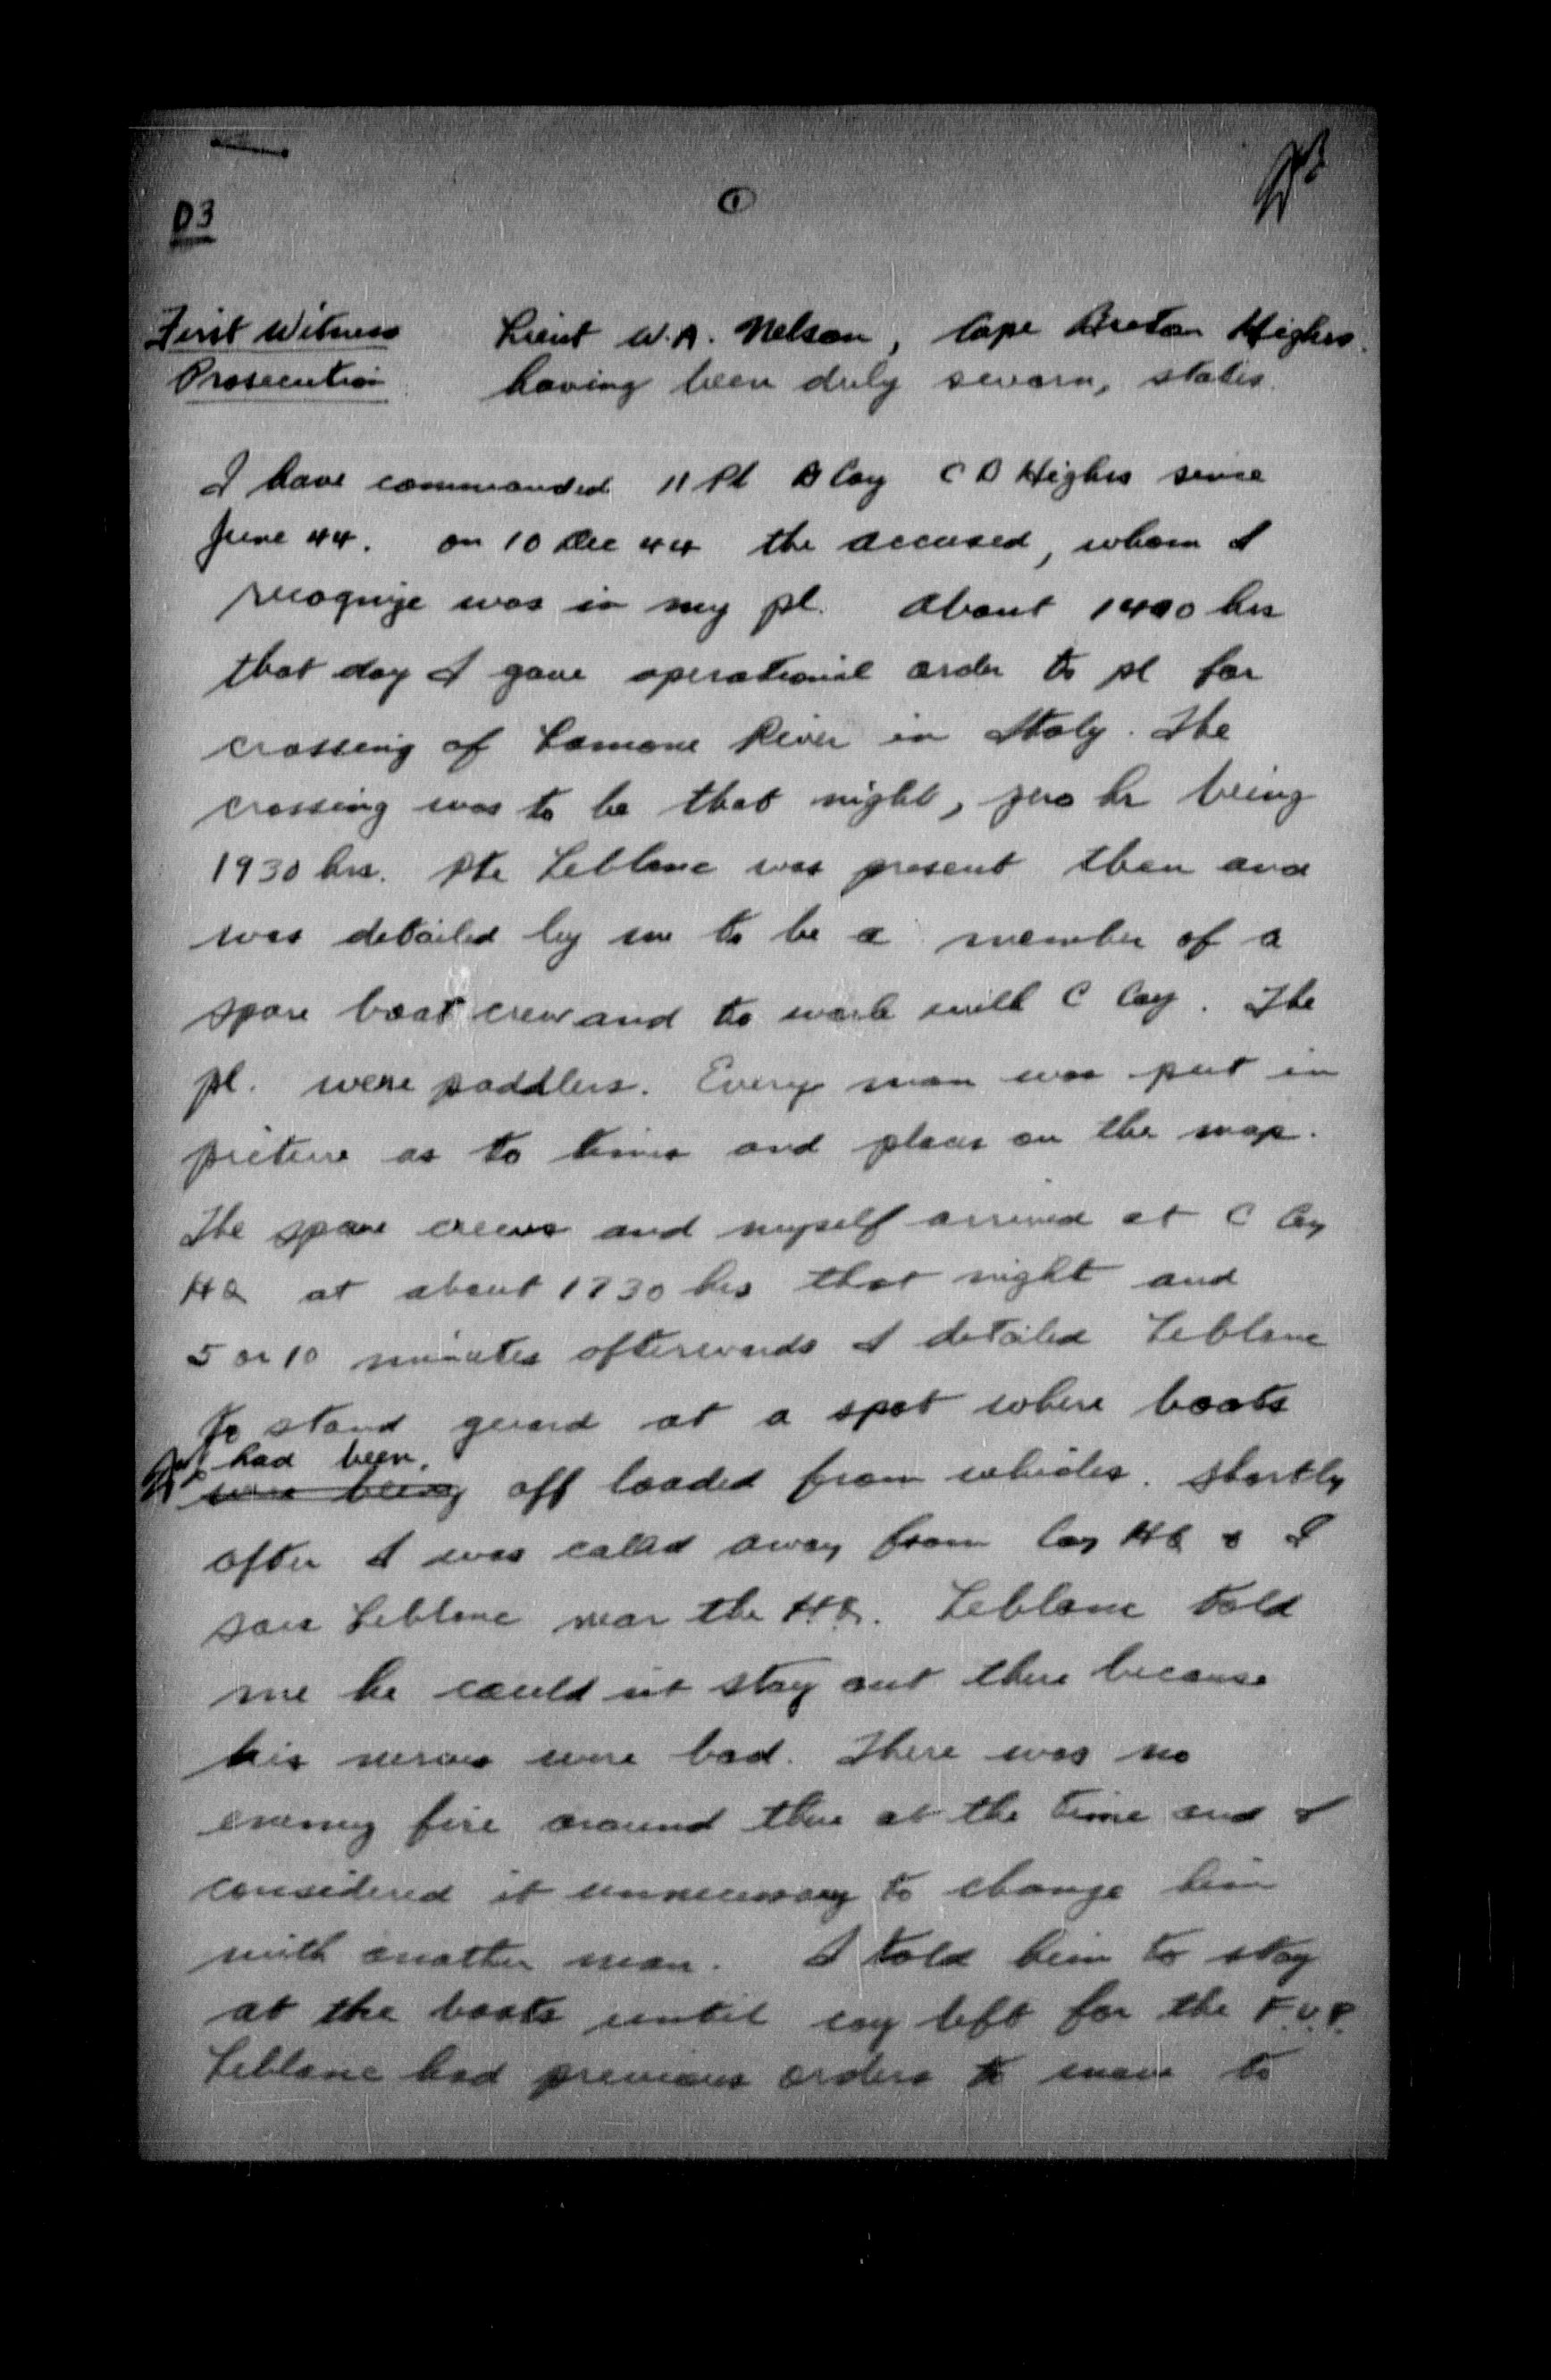 D3
1
First Witness Lieut W.A. Nelson, Cape Breton Highrs.
Prosecution having been duly sworn, states.
I have commanded 11 Pl B Coy C B Highrs since
June 44. On 10 Dec 44 the accused, whom I
recognize was in my pl. About 1400 hrs
that day I gave operational order to pl for
crossing of Lamone River in Italy. The
crossing was to be that night, zero hr being
1930 hrs. Pte Leblanc was present then and
was detailed by me to be a member of a
spare boat crew and to work with C Coy. The
pl. were paddlers. Every man was put in
picture as to times and places on the map.
The spare crews and myself arrived at C Coy
HQ at about 1730 hrs that night and
5 or 10 minutes afterwards I detailed Leblanc
to stand guard at a spot where boats
had been.
were being off loaded from vehicles. Shortly
after I was called away from Coy HQ & I
saw Leblanc near the H.Q. Leblanc told
me he could nt stay out there because
his nerves were bad. There was no
enemy fire around there at the time and I
considered it unnecessary to change him
with another man. I told him to stay
at the boats until coy left for the F.U.P.
Leblanc had previous orders to move to